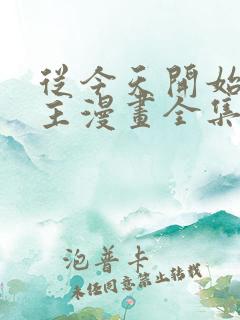 從今天開始
王漫畫全集
泡普卡
未經同意禁止轉載